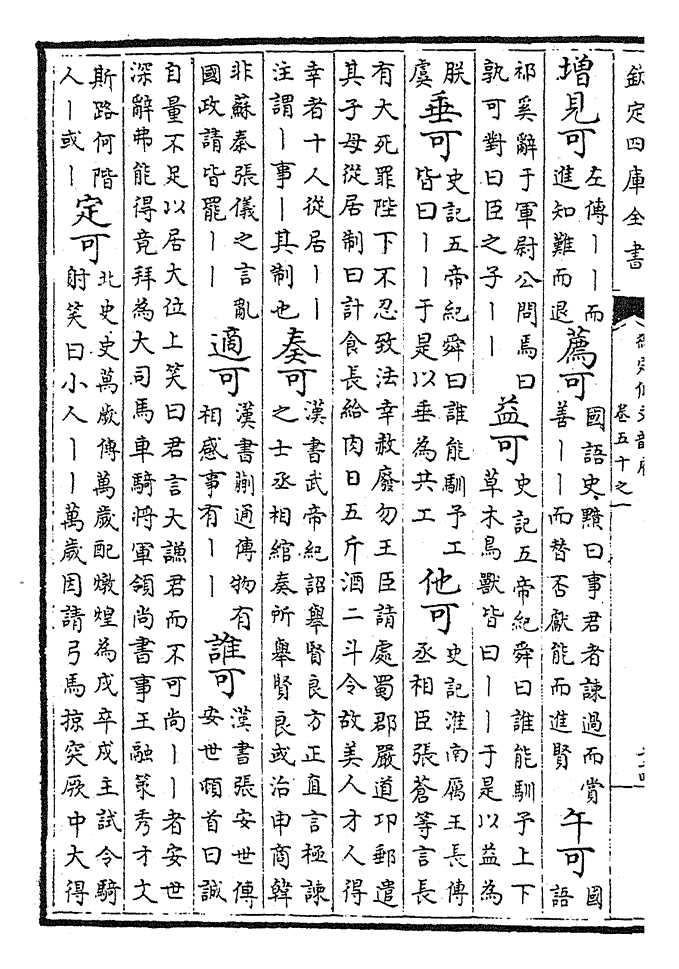 欽定四庫全書
御定佩文韻府
卷五十之一
增見可
左傳丨丨而
進知難而退
薦可
國語史黯曰事君者諫過而賞
善丨丨而替否獻能而進賢
午可
國
語
祁奚辭于軍尉公問焉曰
孰可對曰臣之子丨丨
益可
史記五帝紀舜曰誰能馴予上下
草木鳥獸皆曰丨丨于是以益為
朕
虞
垂可
史記五帝紀舜曰誰能馴予工
皆曰丨丨于是以垂為共工
他可
史記淮南厲王長傳
丞相臣張蒼等言長
有大死罪陛下不忍致法幸赦廢勿王臣請處蜀郡嚴道邛郵遣
其子母從居制曰計食長給肉日五斤酒二斗令故美人才人得
幸者十人從居丨丨
注謂丨事丨其制也
奏可
漢書武帝紀詔舉賢良方正直言極諫
之士丞相綰奏所舉賢良或治申商韓
非蘇秦張儀之言亂
國政請皆罷丨丨
適可
漢書蒯通傳物有
相感事有丨丨
誰可
漢書張安世傳
安世頓首曰誠
自量不足以居大位上笑曰君言大謙君而不可尚丨丨者安世
深辭弗能得竟拜為大司馬車騎將軍領尚書事王融策秀才文
斯路何階
人丨或丨
定可
北史史萬歲傳萬歲配燉煌為戍卒戍主試令騎
射笑曰小人丨丨萬歲固請弓馬掠突厥中大得